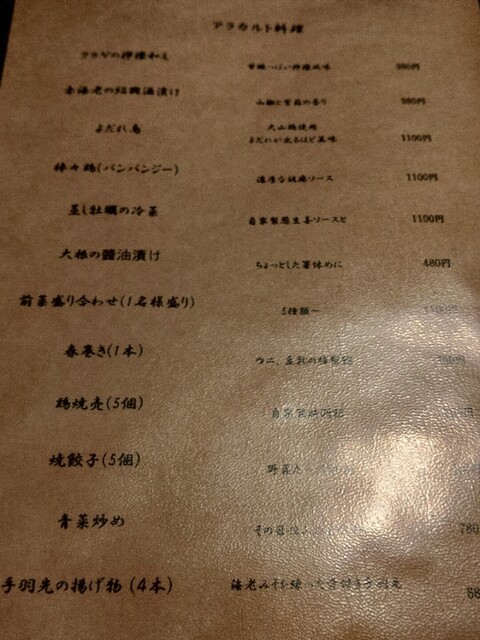 アラカルト料理
クラゲの檸檬和え 甘酸っぱい檸檬風味 980円
赤海老の紹興酒漬け 山椒と の香り 980円
よだれ鳥 大山鶏使用
よだれが出るほど美味 1100円
棒々鶏(バンバンジー) 濃厚な胡麻ソース 1100円
蒸し牡蠣の冷菜 自家製葱生姜ソースと 1100円
大根の醤油漬け ちょっとした箸休めに 480円
前菜盛り合わせ(1名様盛り) 5種類〜
春巻き(1本) ウニ、豆乳の
鶏焼売(5個) 自家製
焼餃子(5個) 野菜た
青菜炒め その 780
手羽先の揚げ物(4本) 海老みそを